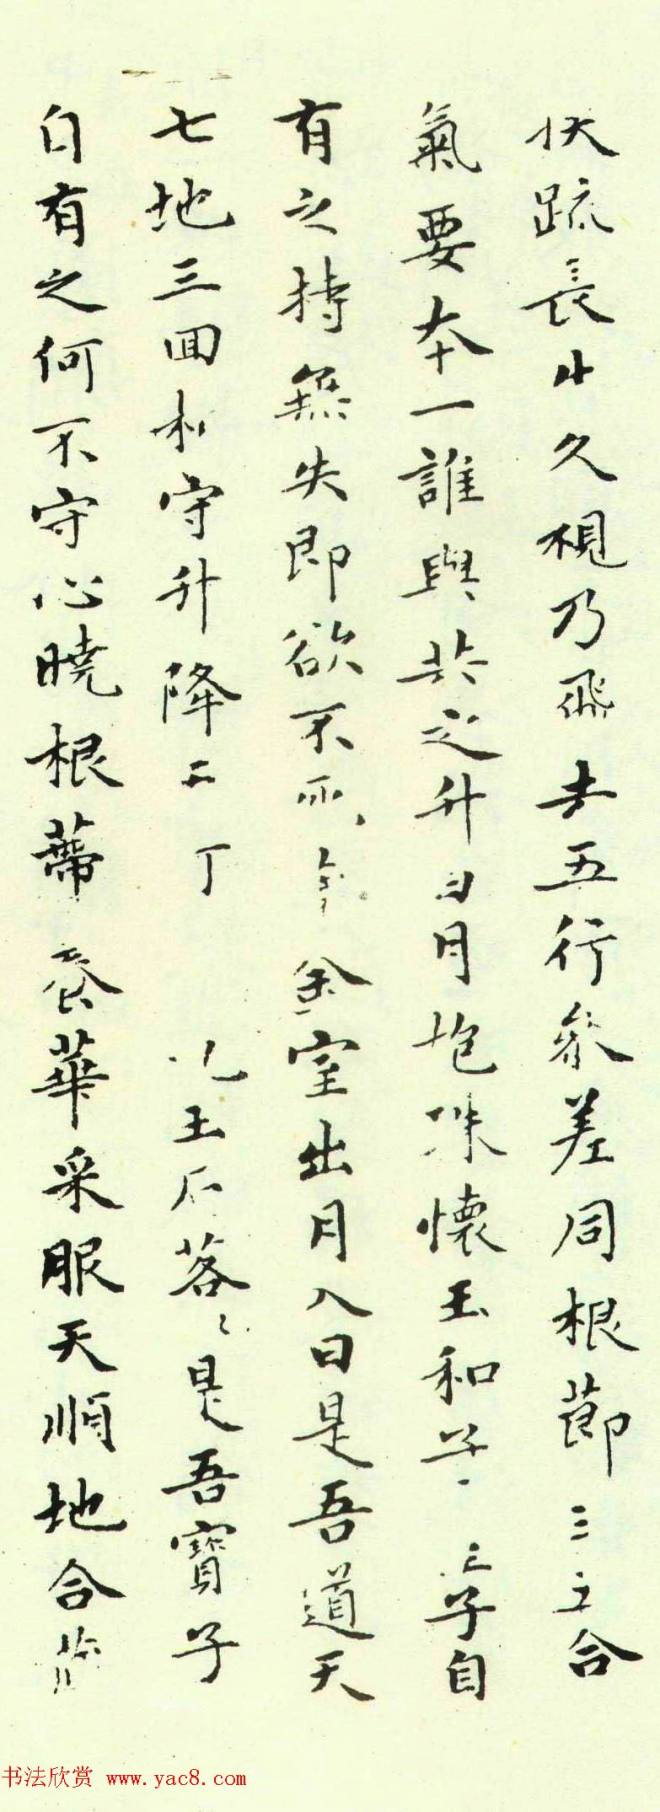 扶疏長生久視乃飛去五行參差同根節三五合
氣要本一誰與共之升日月抱珠懷玉和子 子自
有之持無失即欲不死 金室出月入日是吾道天
七地三回相守升降 王石落〻是吾寶子
自有之何不守心曉根蒂養華采服天順地合藏
书法欣赏 www.yac8.com